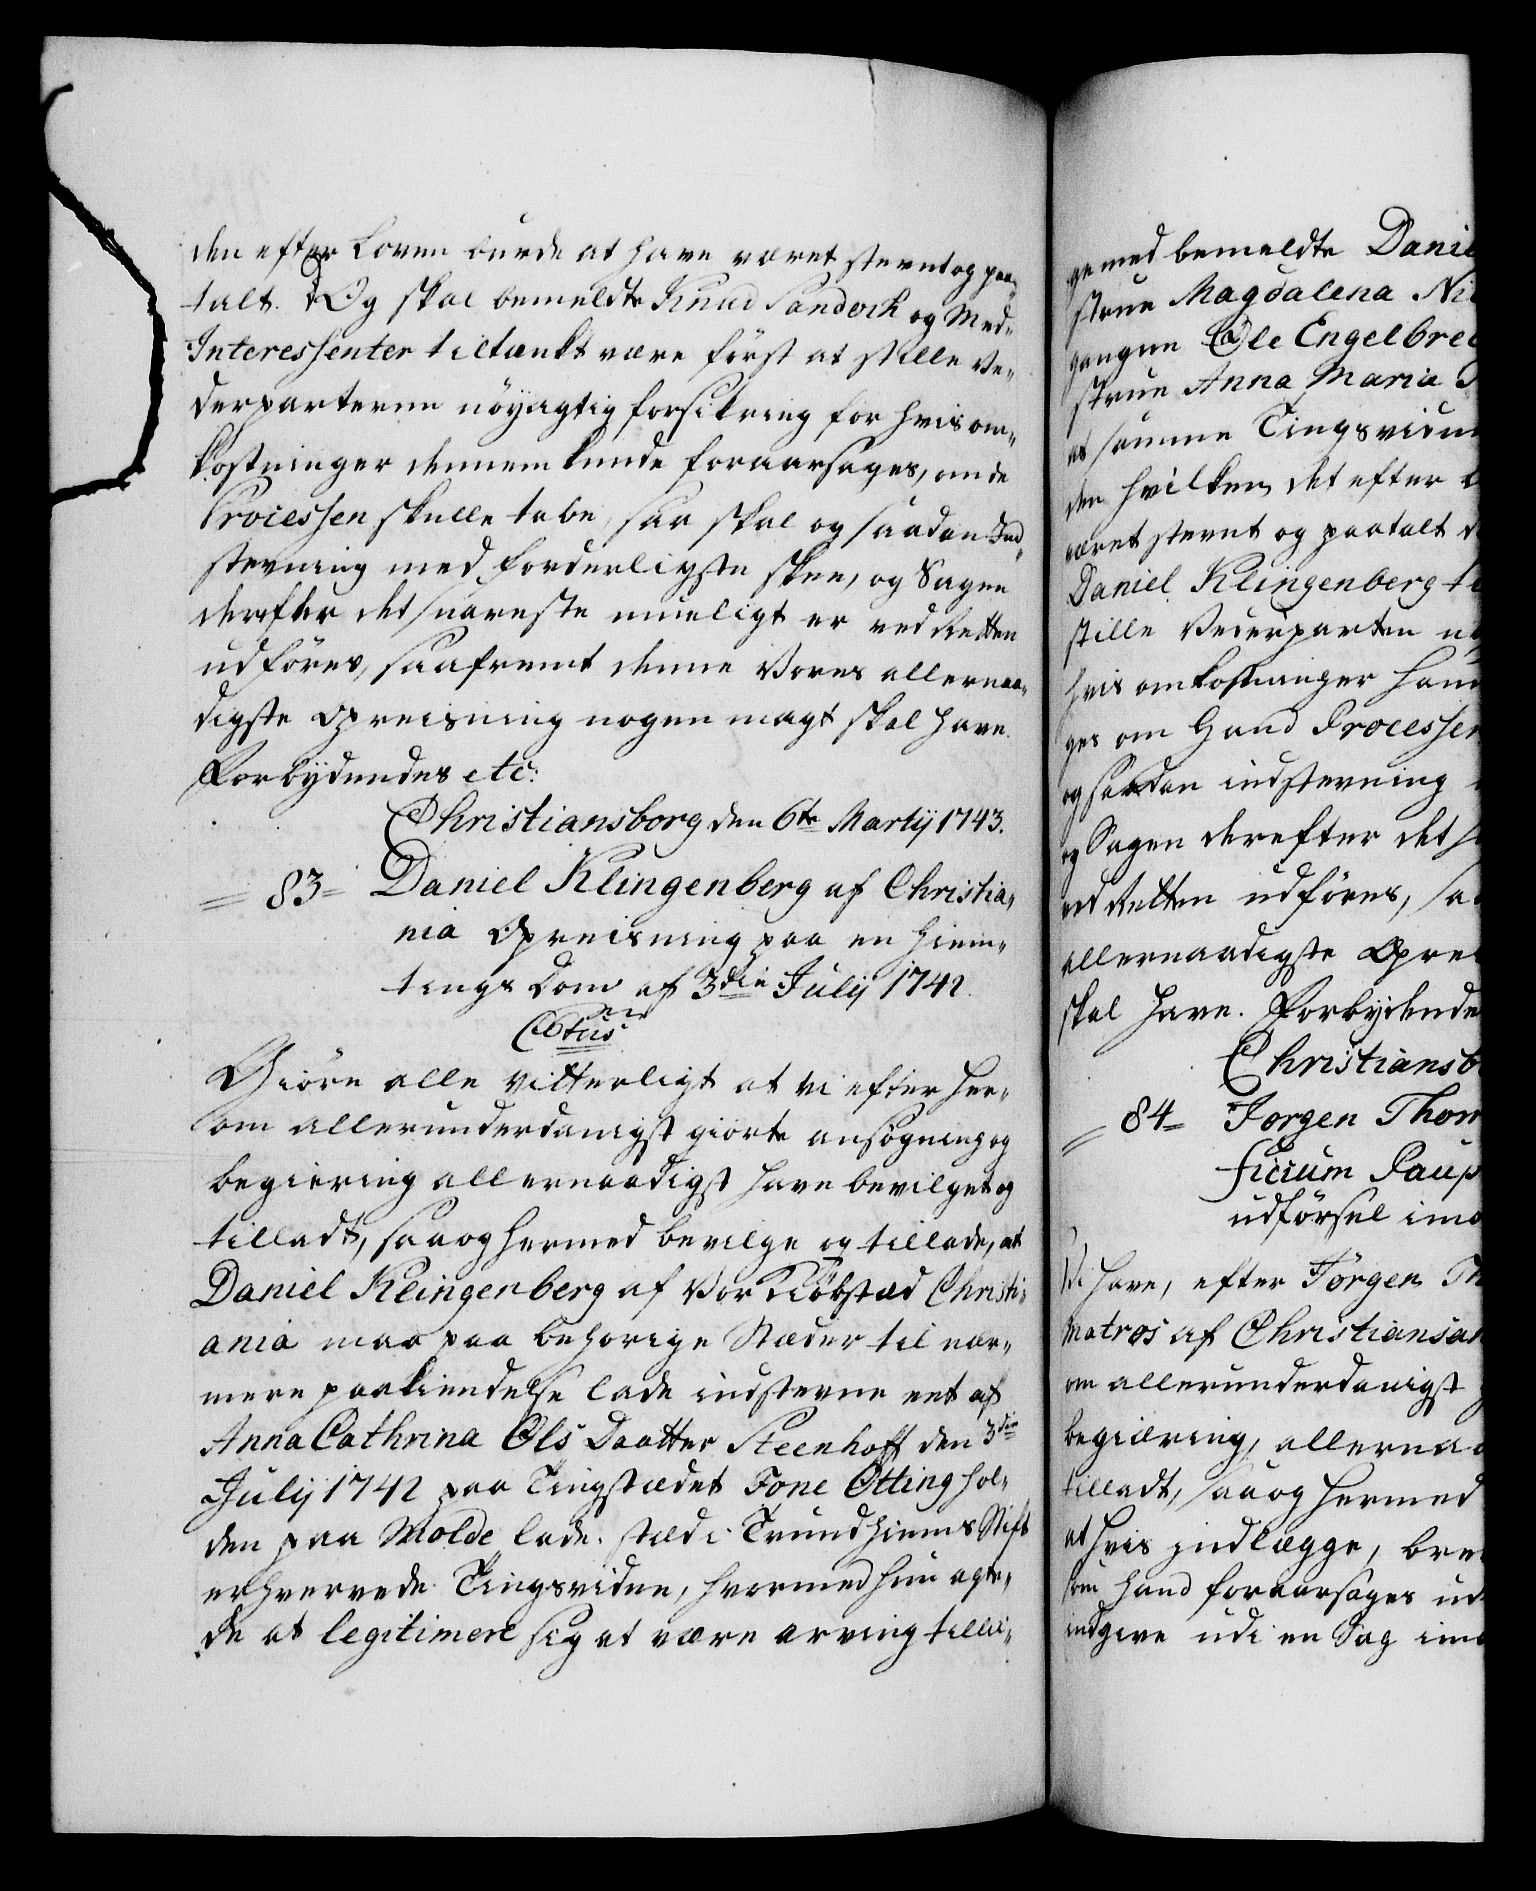 den efter Loven burde at have været stevnet og paa-
talt. Og skal bemeldte Knud Sandvik og Med-
Interessenter tiltænkt være först at stille Ve-
derparterne nöyagtig forsikring for hvis om-
kostninger dennem kunde foraarsages, om de
Processen skulle tabe, saa skal og saadan Ind-
stevning med forderligste skee, og Sagen
derefter det snareste mueligt er ved Retten
udföres, saafremt denne Vores allernaa-
digste Opreisning nogen magt skal have.
Forbydendes etc:
Christiansborg den 6te Martij 1743.
= 83 = Daniel Klingenberg af Christia-
nia Opreisning paa en Hiem-
tings Dom af 3die Julij 1742.
C6tus
Giöre alle vitterligt at vi efter her-
om allerunderdanigst giorte ansögning og
begiering allernaadigst have bevilget og
tilladt, saa og hermed bevilge og tillade, at
Daniel Klingenberg af Vor Kiöbstæd Christi-
ania maa paa behorige Stæder til nær-
mere paakiendelse lade indstevne eet af
Anna Cathrina Ols Daatter Steenhoff den 3die
Julij 1742 paa Tingstædet Tone Otting hol-
den paa Molde lade-stæd i Trundhiems Stift
erhvervede Tingsvidne, hvormed hun agte-
de at legitimere sig at være arving tillii-
ge med bemeldte Danie
strue Magdalena Ni
gangne Ole Engelbrec
strue Anna Maria
at samme Tingsvidne
den hvilken det efter L
været stevnt og paatalt
Daniel Klingenberg ti
stille Vederparten
hvis omkostninger ham
ges om Hand Processen
og saadan indstevning
og Sagen derefter det
ved Retten udföres, sa
allernaadigste Oprei
skal have. Forbydende
Christiansb
= 84 = Jorgen Thom
ficium Paup
udförsel imo
Vi have, efter Jörgen Th
Matros af Christiansan
om allerunderdanigst
begiæring, allernaa
tilladt, saa og hermed
at hvis jndlægge, bre
som hand foraarsages ud
indgive udi en Sag imo